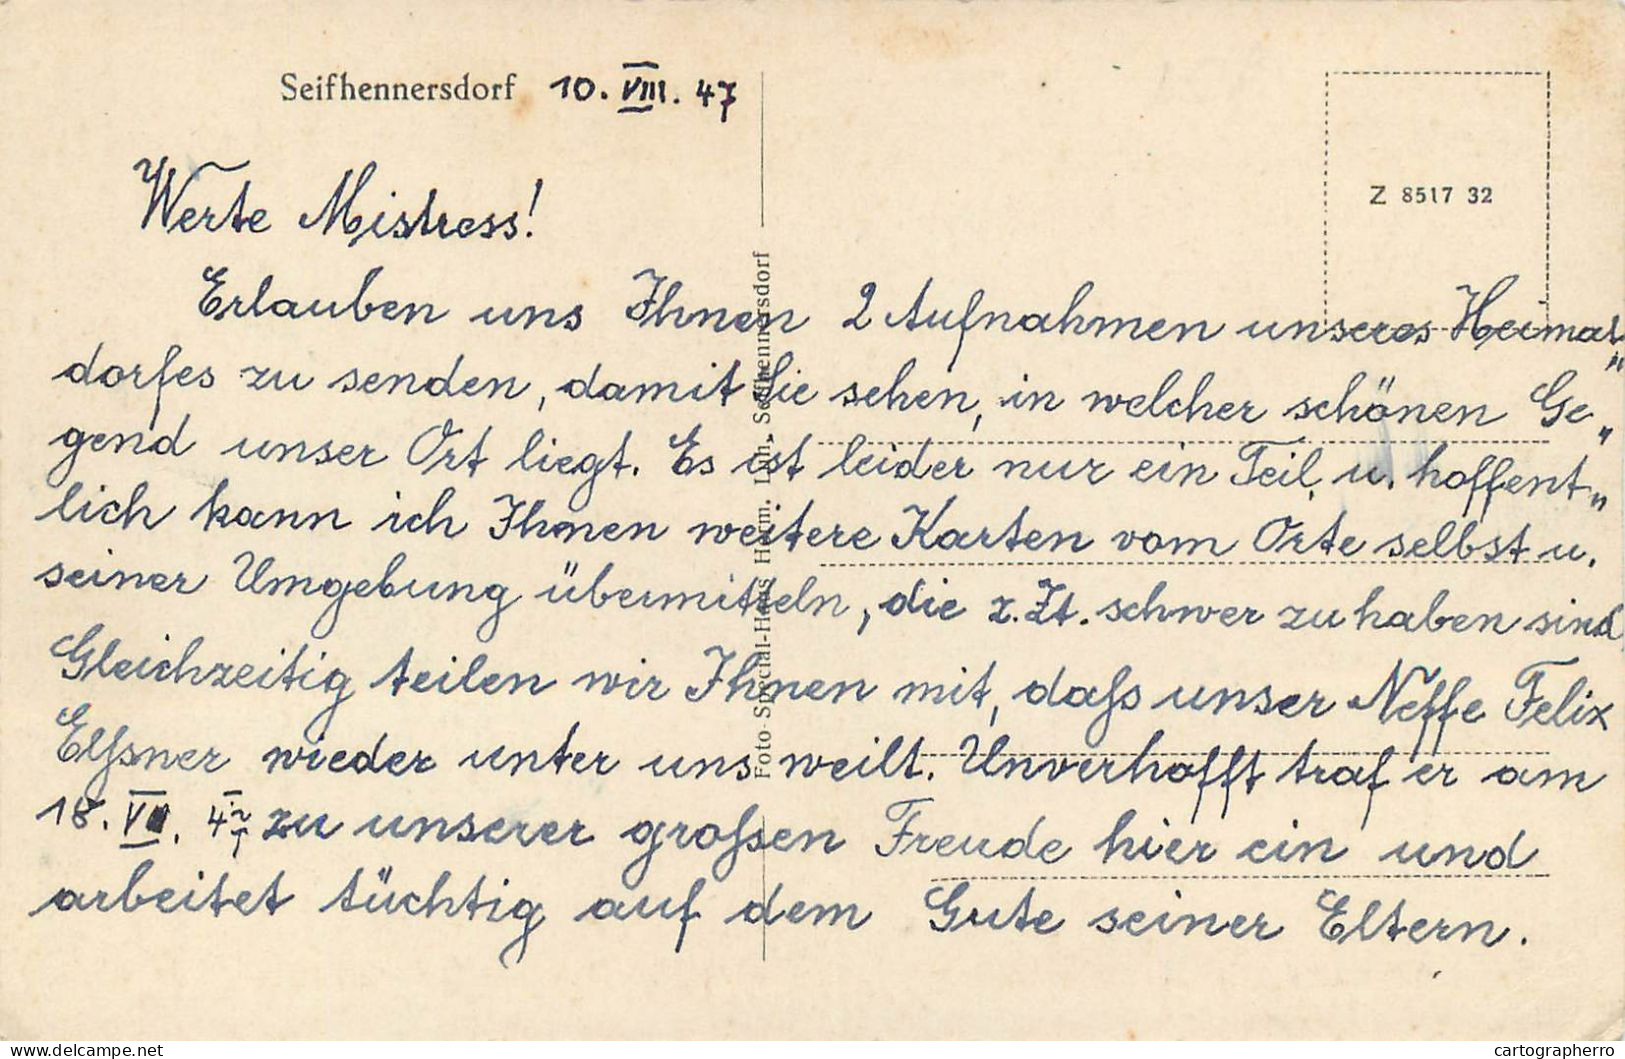 Seifhennersdorf 10. VIII. 47
Z 8517 32
Werte Mistress!
Erlauben uns Ihnen 2 Aufnahmen unseres Heimat„
dorfes zu senden, damit Sie sehen, in welcher schönen Ge„
gend unser Ort liegt. Es ist leider nur ein Teil, u. hoffent„
lich kann ich Ihnen weitere Karten vom Orte selbst u.
seiner Umgebung übermitteln, die z. Zt. schwer zu haben sind
Gleichzeitig teilen wir Ihnen mit, daß unser Neffe Felix
Elßner wieder unter uns weilt. Unverhofft traf er am
18. VII. 47 zu unserer großen Freude hier ein und
arbeitet tüchtig auf dem Gute seiner Eltern.
Foto Special-Haus Herm. Seifhennersdorf
cartographerro